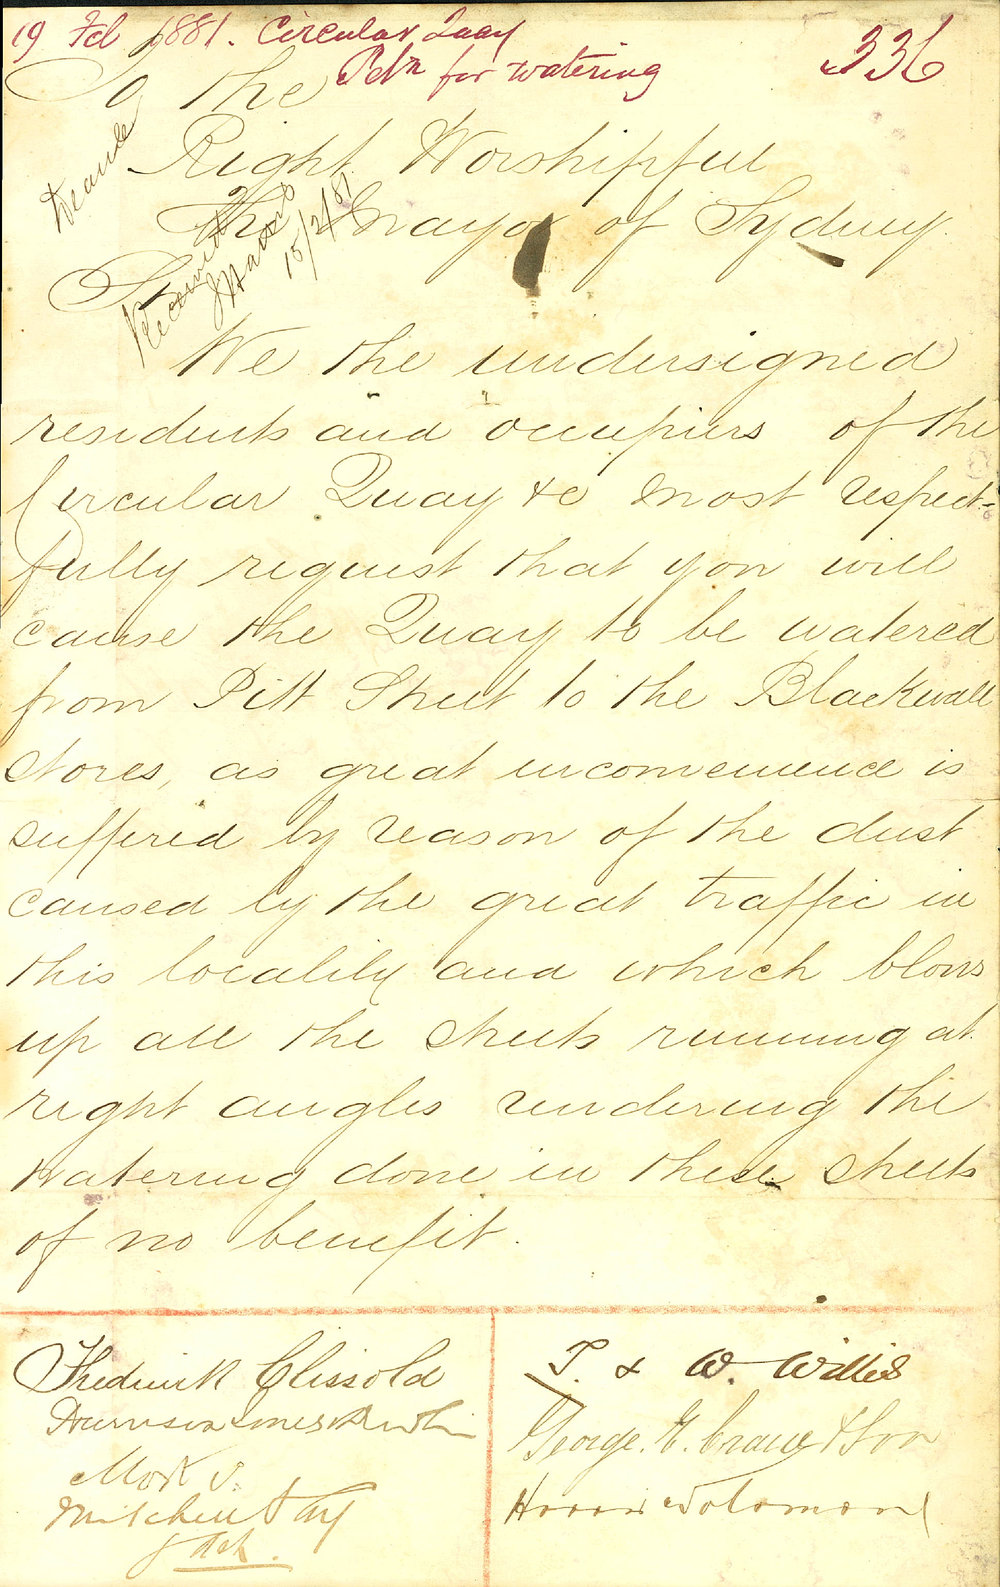 19 Feb 1881. Circular Quay
Petn for watering
336
To the
Right Worshipful
The Mayor of Sydney.
15/2/81
Sir
We the undersigned
residents and occupiers of the
Circular Quay &c most respect-
fully request that you will
cause the Quay to be watered
from Pitt Street to the Blackwall
Stores, as great inconvenience is
suffered by reason of the dust
caused by the great traffic in
this locality and which blows
up all the streets running at
right angles rendering the
watering done in these streets
of no benefit.
Frederick Clissold
Harrison Jones & Devlin
Mort &
Mitchell &
T. & W. Willis
George. E. Crane & Son
Solomon